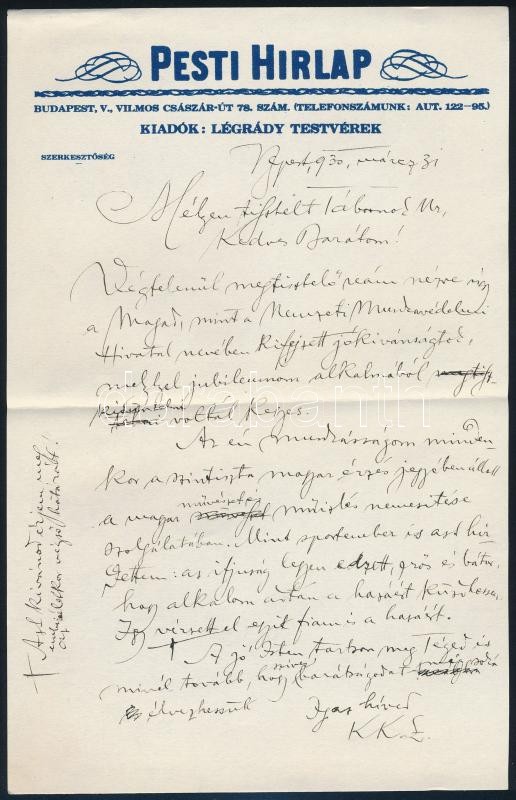 PESTI HIRLAP
BUDAPEST, V., VILMOS CSÁSZÁR-ÚT 78. SZÁM. (TELEFONSZÁMUNK: AUT. 122—95.)
KIADÓK: LÉGRÁDY TESTVÉREK
SZERKESZTŐSÉG
Bpest, 930, márcz 31
Mélyen tisztelt Tábornok Ur,
Kedves Barátom!
Végtelenül megtisztelő reám nézve úgy
a Magad, mint a Nemzeti Munkavédelmi
Hivatal nevében kifejezett jókivánságod,
melyel jubileumom alkalmából
voltál kegyes.
Az én munkásságom minden-
kor a szintiszta magyar érzés jegyében állott
művészet és
a magyar műizlés nemesitése
szolgálatában. Mint sportember is azt hir-
dettem: az ifjuság legyen edzett, erős és bátor,
hogy alkalom adtán a hazáért küzdhessen.
Igy vérzett el egyik fiam is a hazáért.
A jó Isten tartson meg Téged is
szives
minél tovább, hogy barátságodat
élvezhessük
Igaz hived
K K. L.
Azt kivánod érjem meg
emberéletkor végső határát!